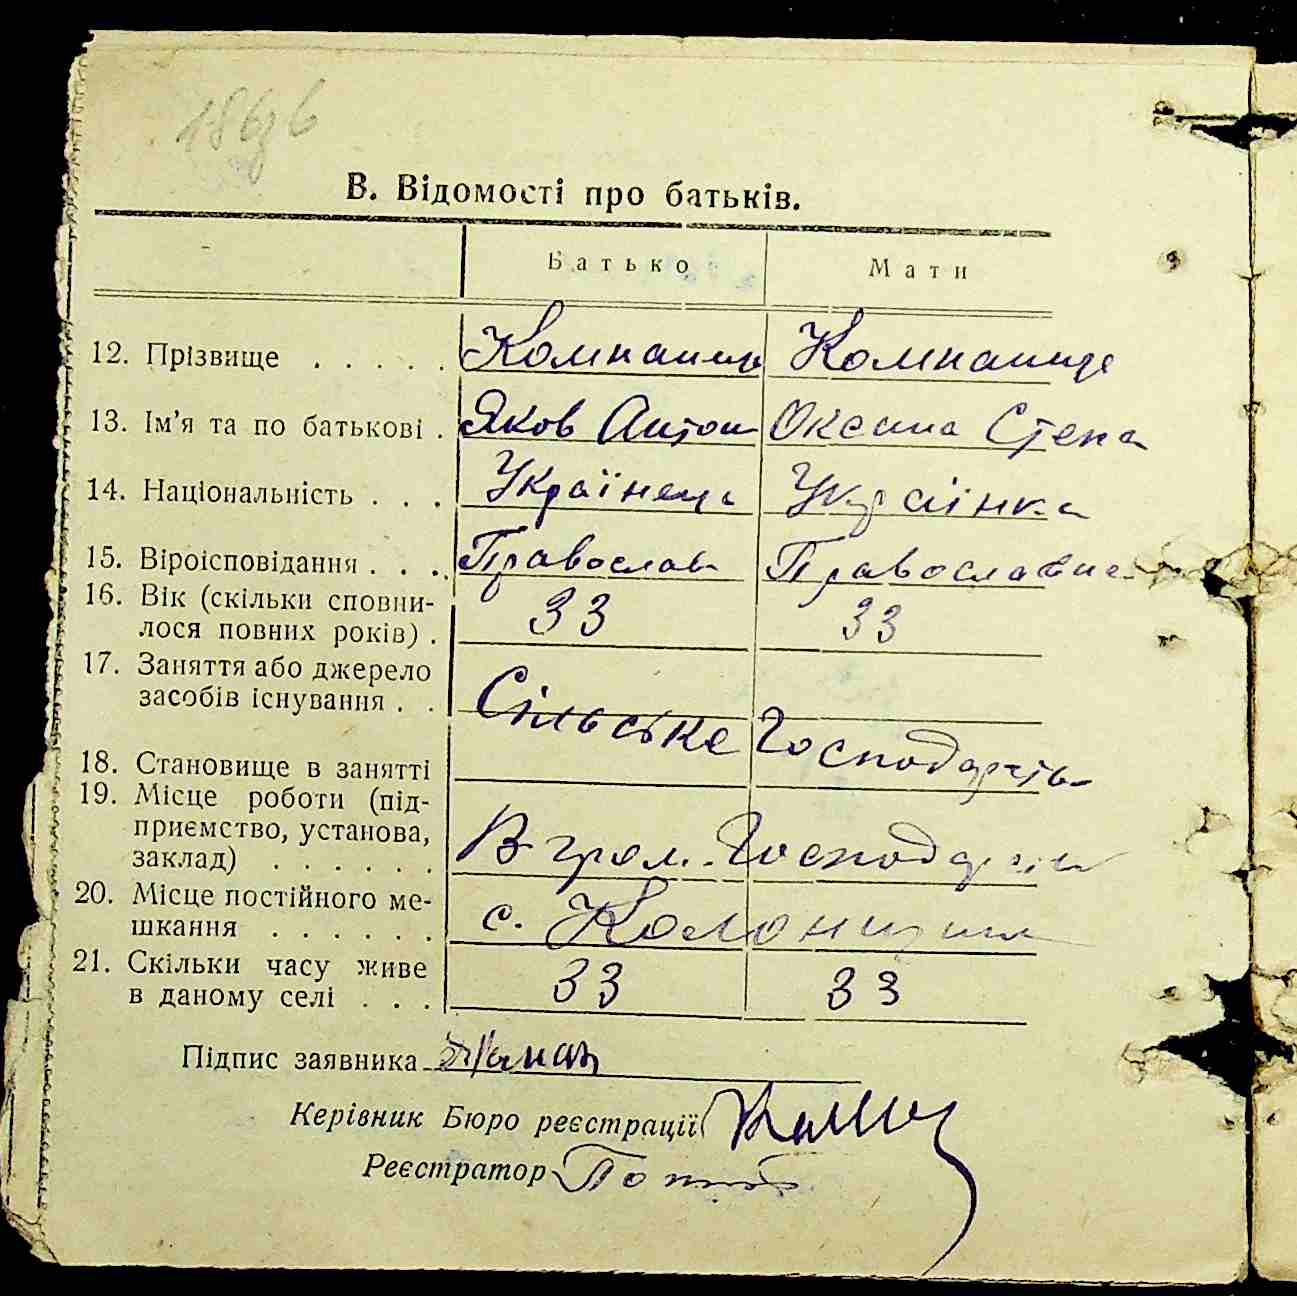 В. Відомості про батьків.
Батько Мати
12. Прізвище . . . . . Компанец Компанець
13. Ім'я та по батькові . Яков Антон Оксана Степа
14. Національність . . . Українець Українка
15. Віроісповідання . . . Православ Православна
16. Вік (скільки сповни-
лося повних років) . 33 33
17. Заняття або джерело
засобів існування . . Сільське Господарств
18. Становище в занятті
19. Місце роботи (під-
приємство, установа,
заклад) . . . . . . В гром. Господарств
20. Місце постійного ме-
шкання . . . . . . с. Колонщина
21. Скільки часу живе
в даному селі . . . 33 33
Підпис заявника
Керівник Бюро реєстрації
Реєстратор